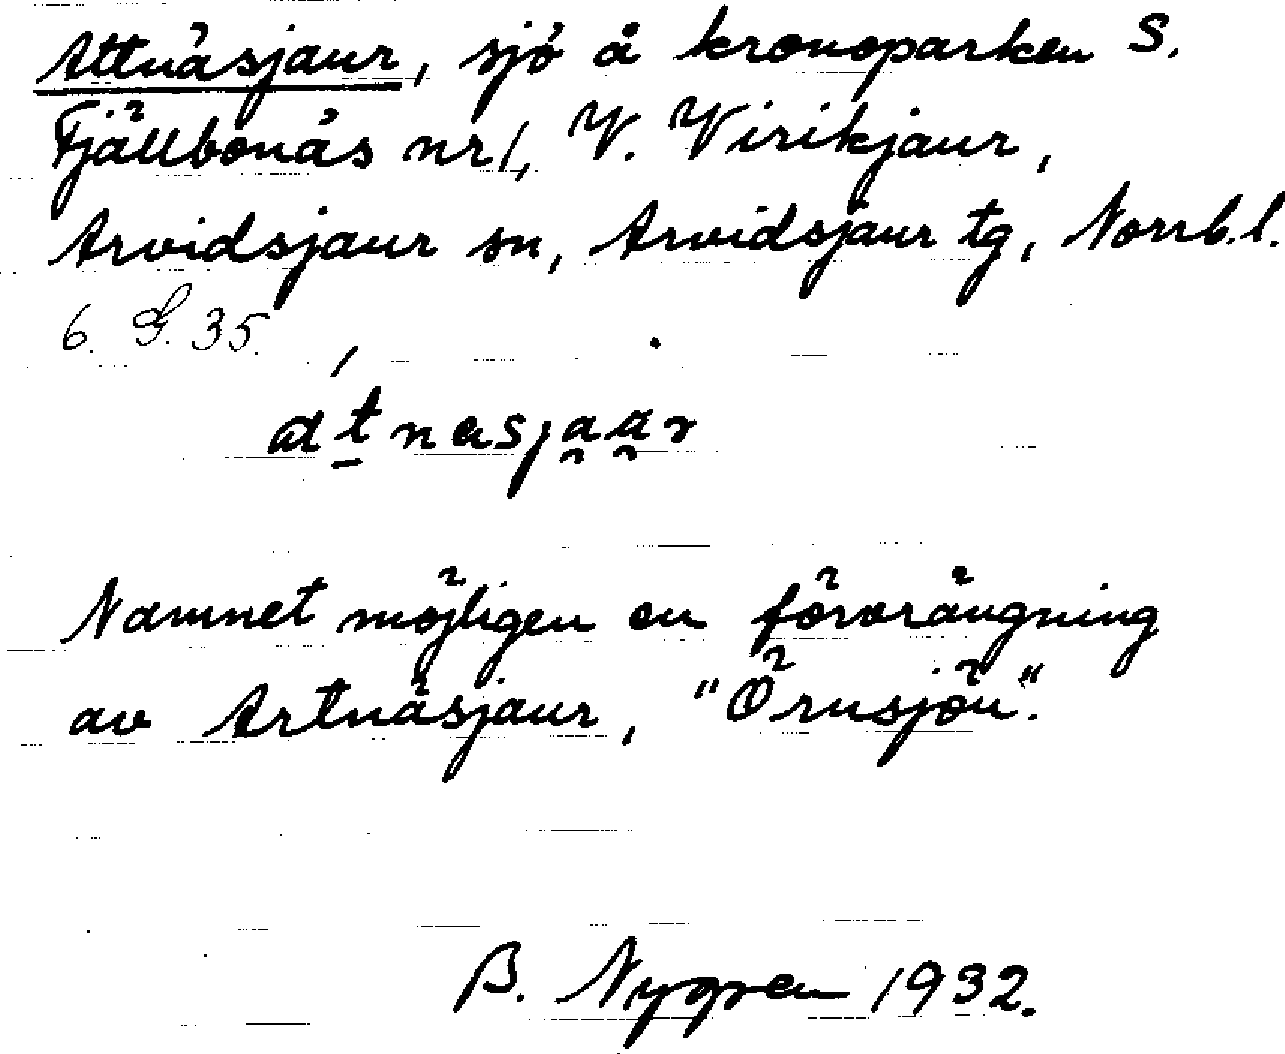 Attnäsjaur, sjö å kronoparken S.
Fjällbonäs nr 1, V. Virikjaur,
Arvidsjaur sn, Arvidsjaur tg, Norrb.l.
6. G. 35.
atnasjaar
Namnet möjligen en förvrängning
av Artnäsjaur, "Örnsjön".
B. Nygren 1932.